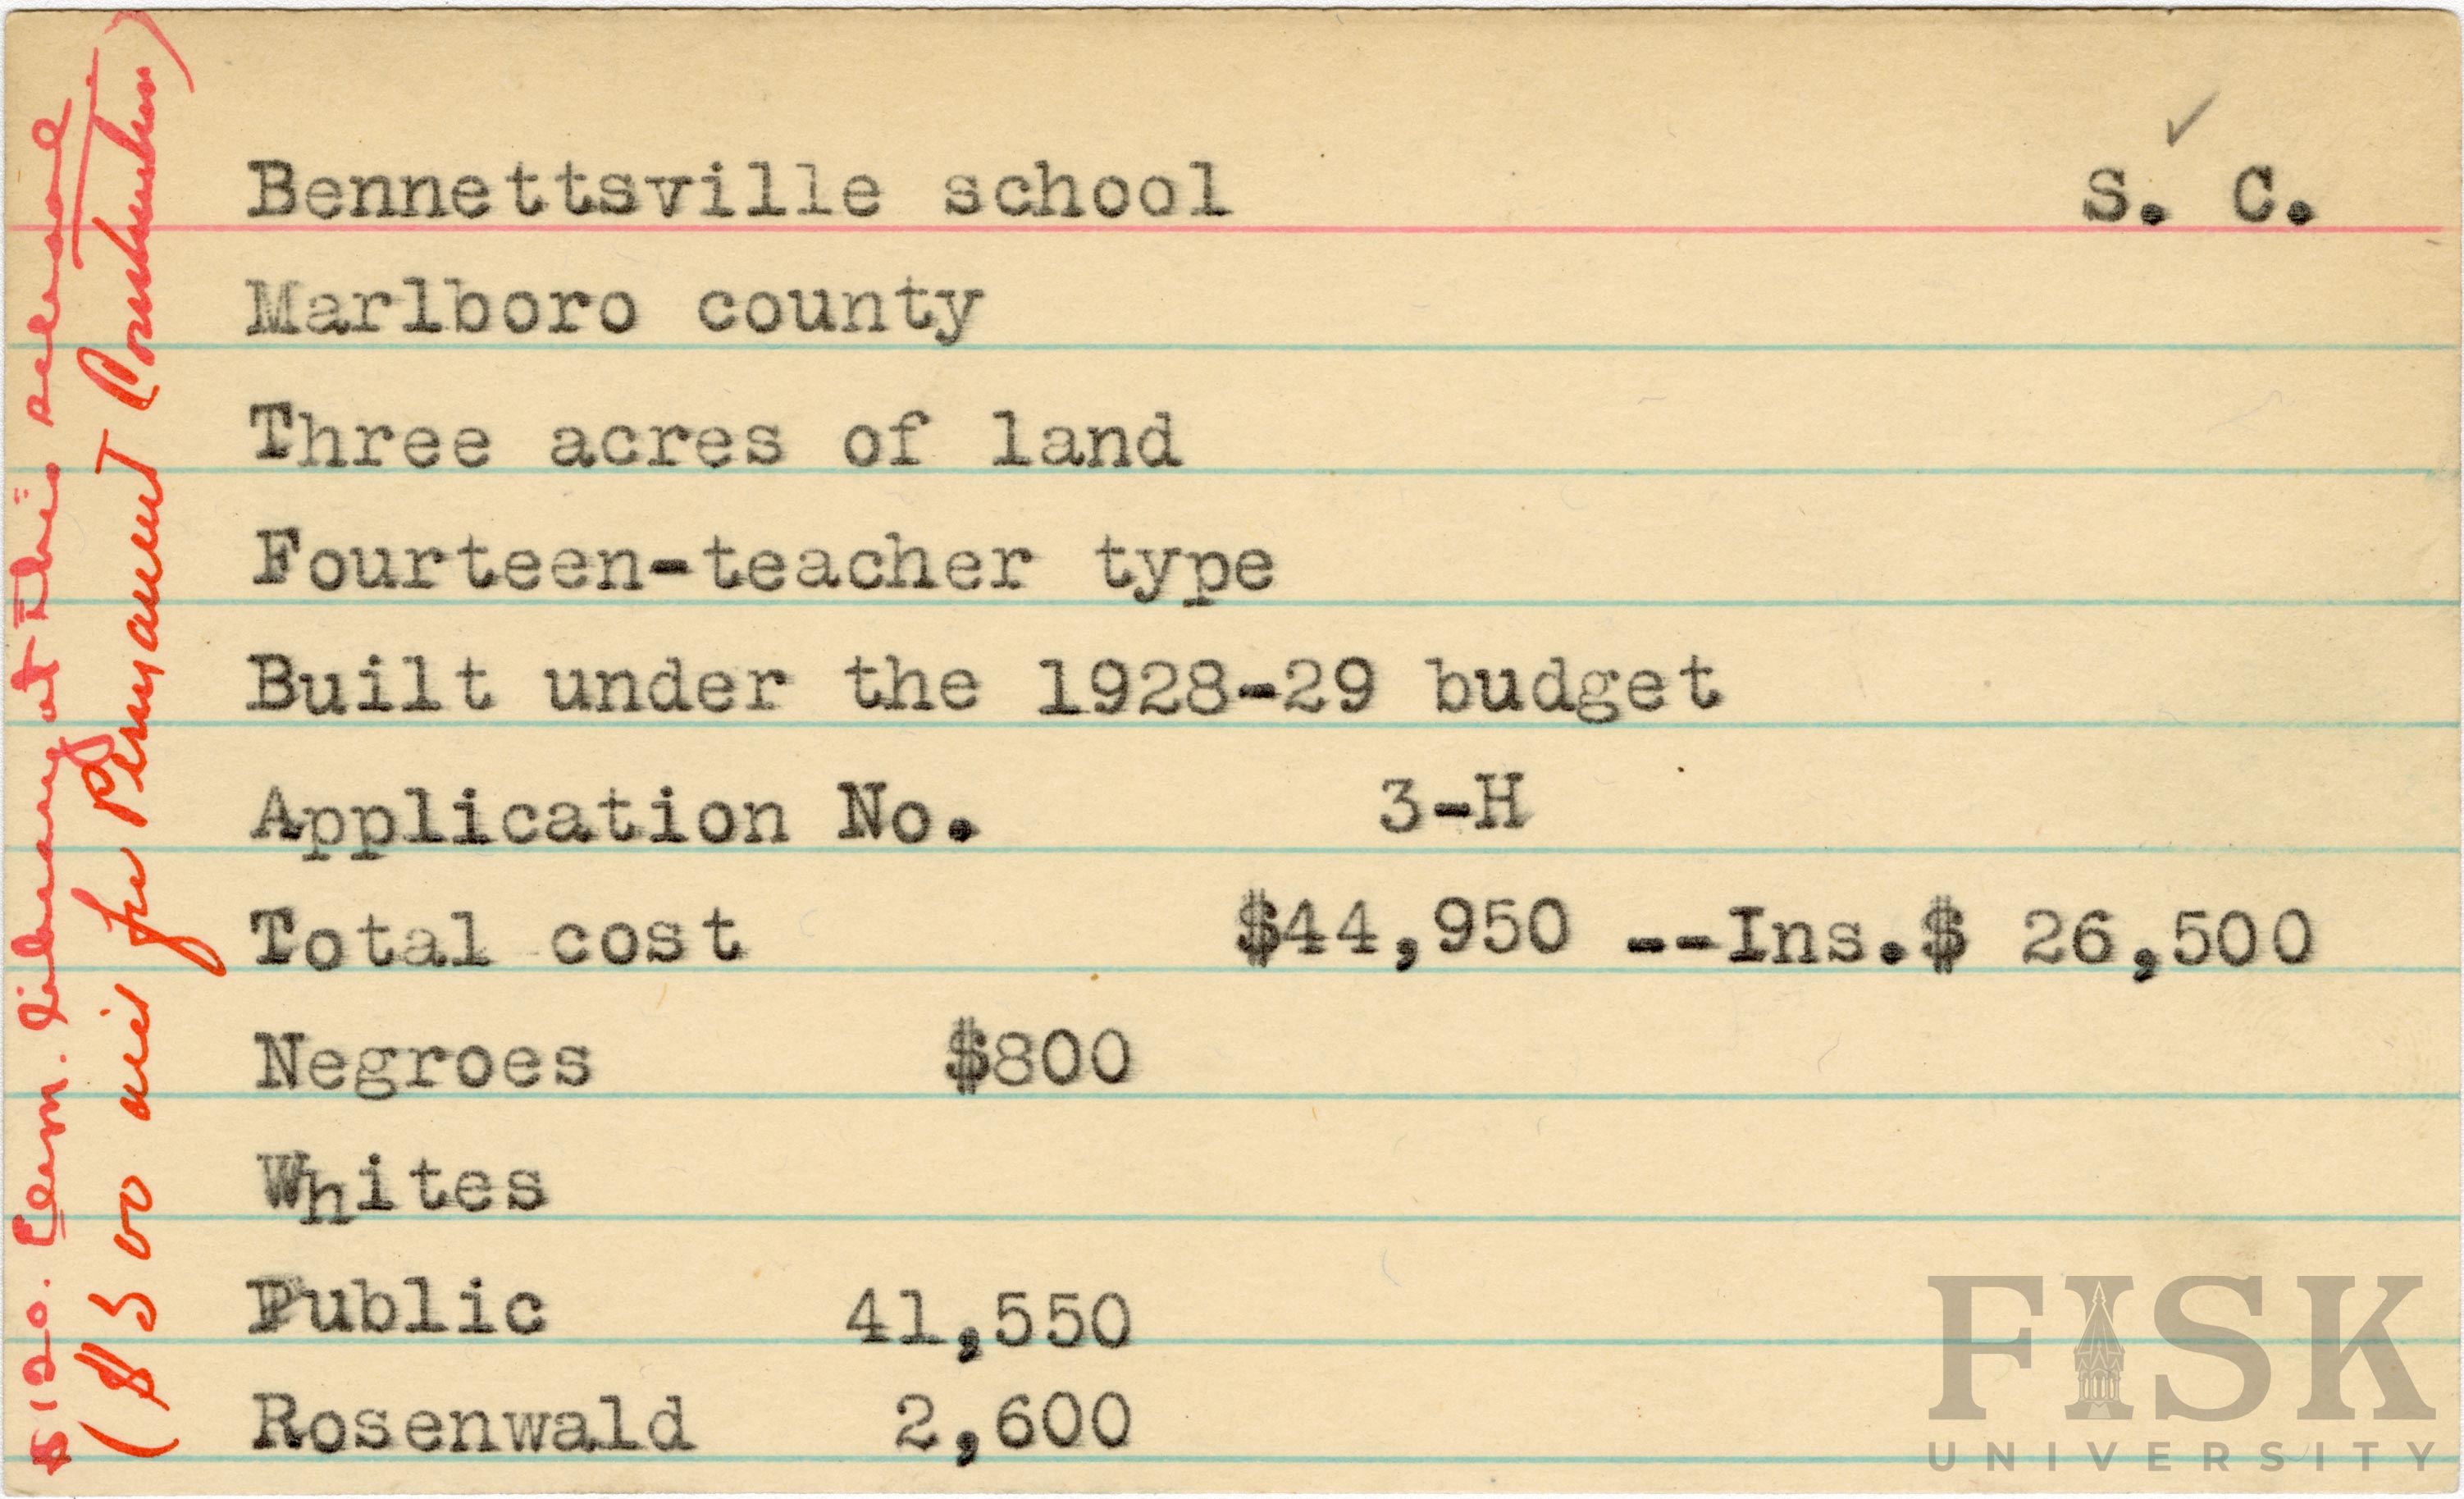 Bennettsville school S. C.
Marlboro county
Three acres of land
Fourteen-teacher type
Built under the 1928-29 budget
Application No. 3-H
Total cost $44,950 --Ins.$ 26,500
Negroes $800
Whites
Public 41,550
Rosenwald 2,600
$120. Elem. Library at this school
($500 aid for Permanent Construction)
FISK
UNIVERSITY